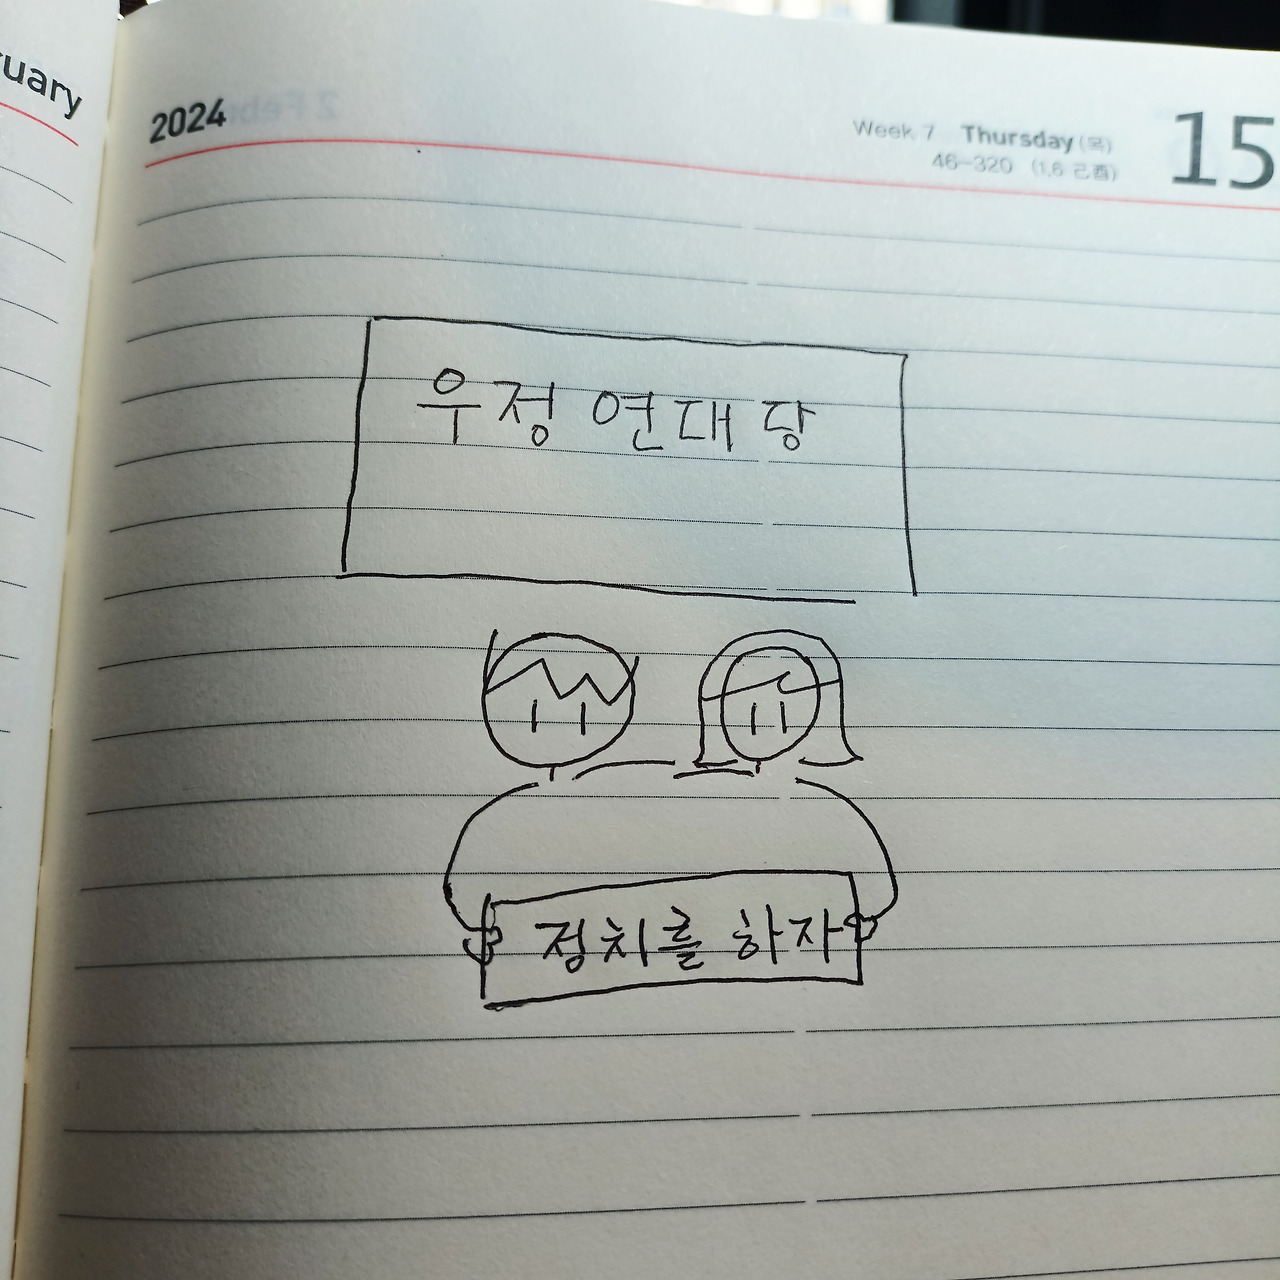 uary
2024
Week 7 Thursday(목)
46-320 (1.6 己酉)
15
우정 연대 당
정치를 하자